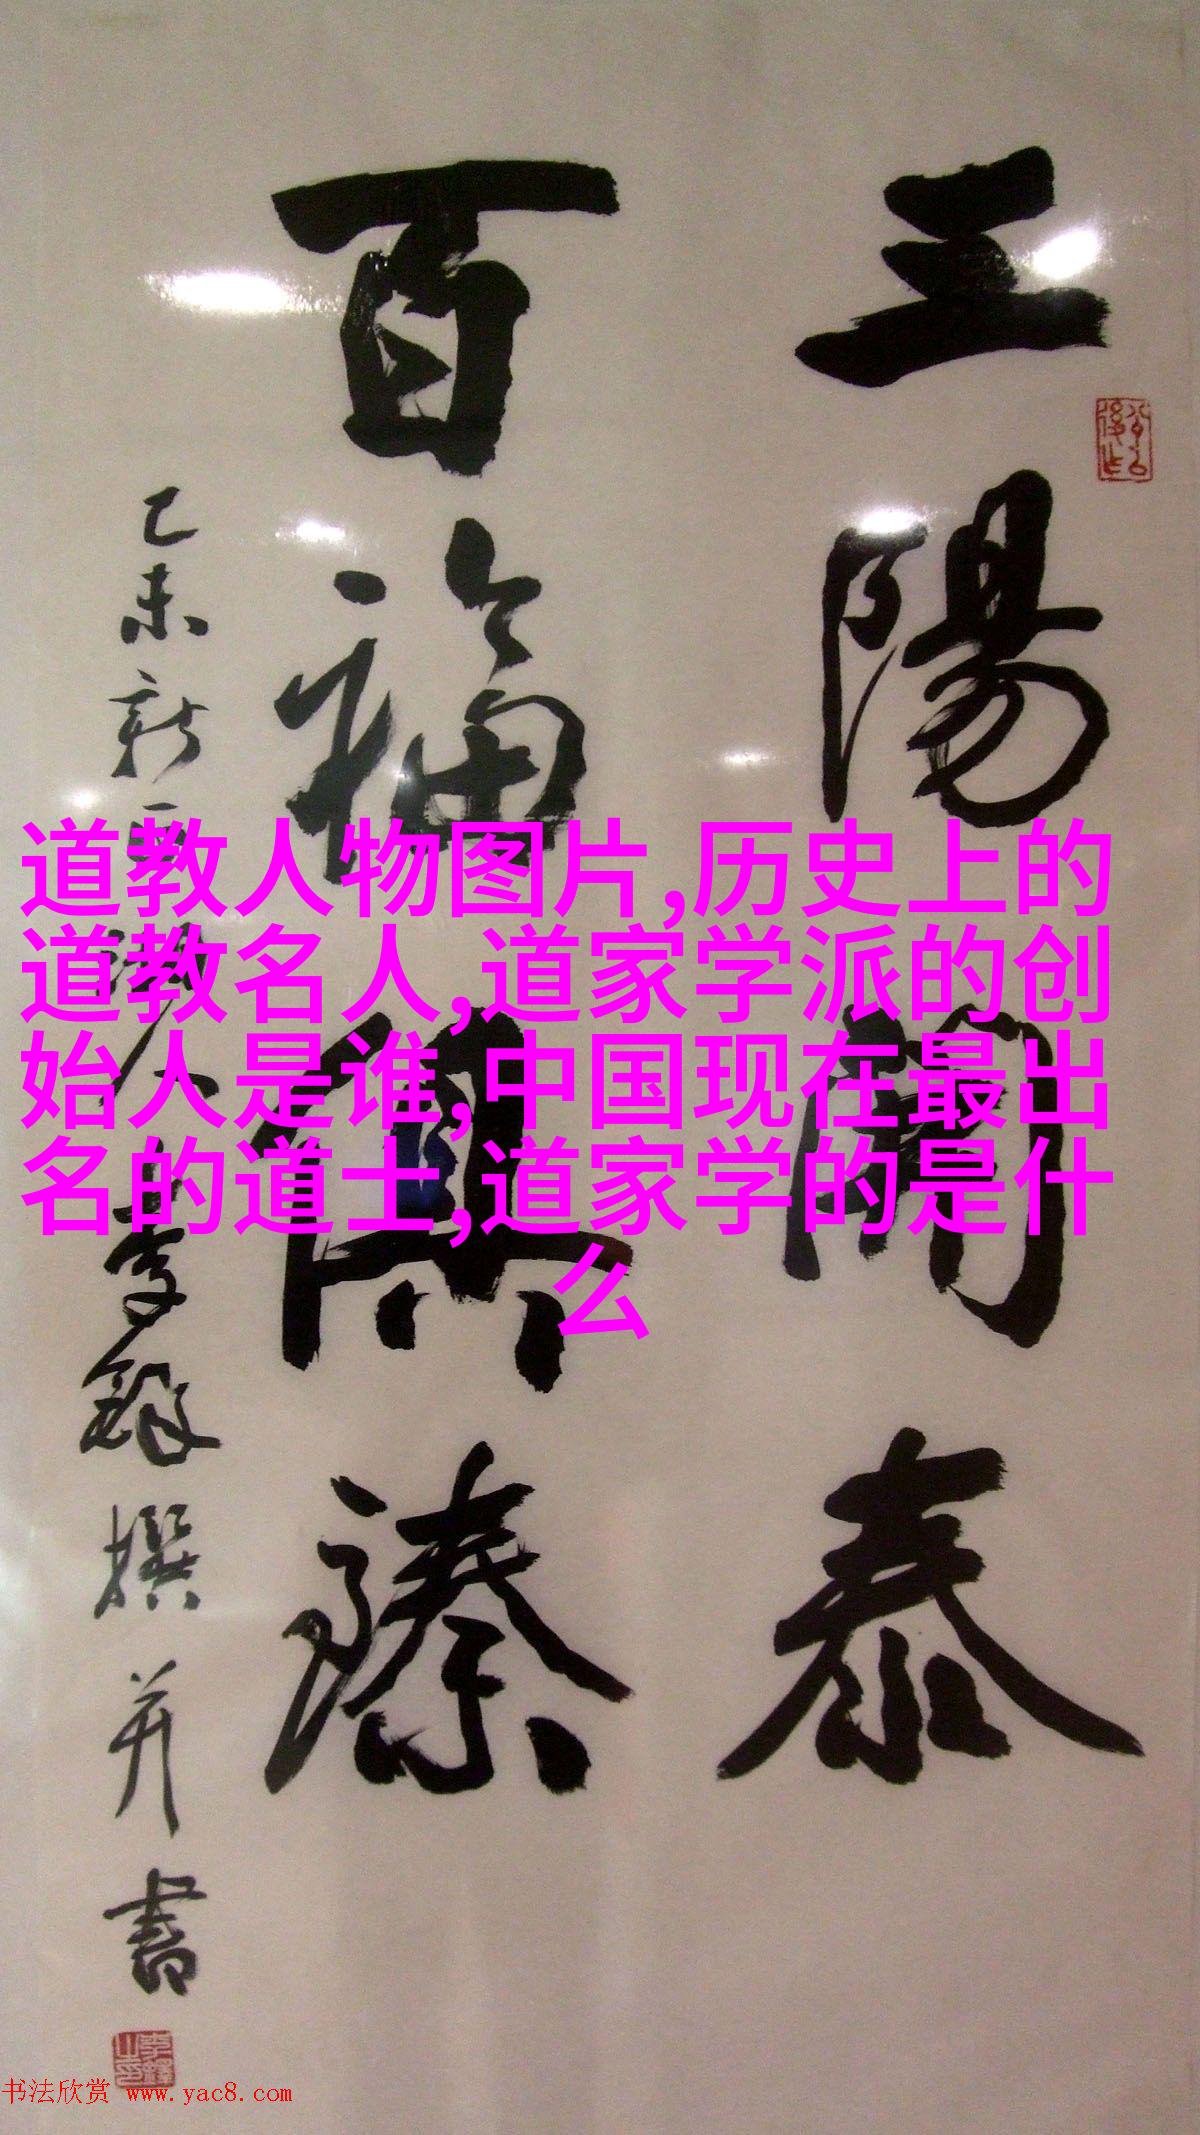 三陽開泰
百福具臻
乙未新正湖人李鐸撰并書
道教人物图片,历史上的
道教名人,道家学派的创
始人是谁,中国现在最出
名的道士,道家学的是什
么
书法欣赏 www.yac8.com